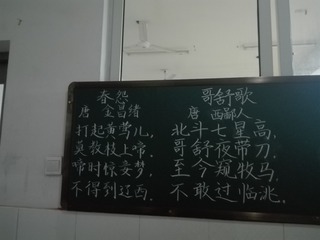 春怨
唐 金昌绪
打起黄莺儿，
莫教枝上啼。
啼时惊妾梦，
不得到辽西。
哥舒歌
唐 西鄙人
北斗七星高，
哥舒夜带刀。
至今窥牧马，
不敢过临洮。